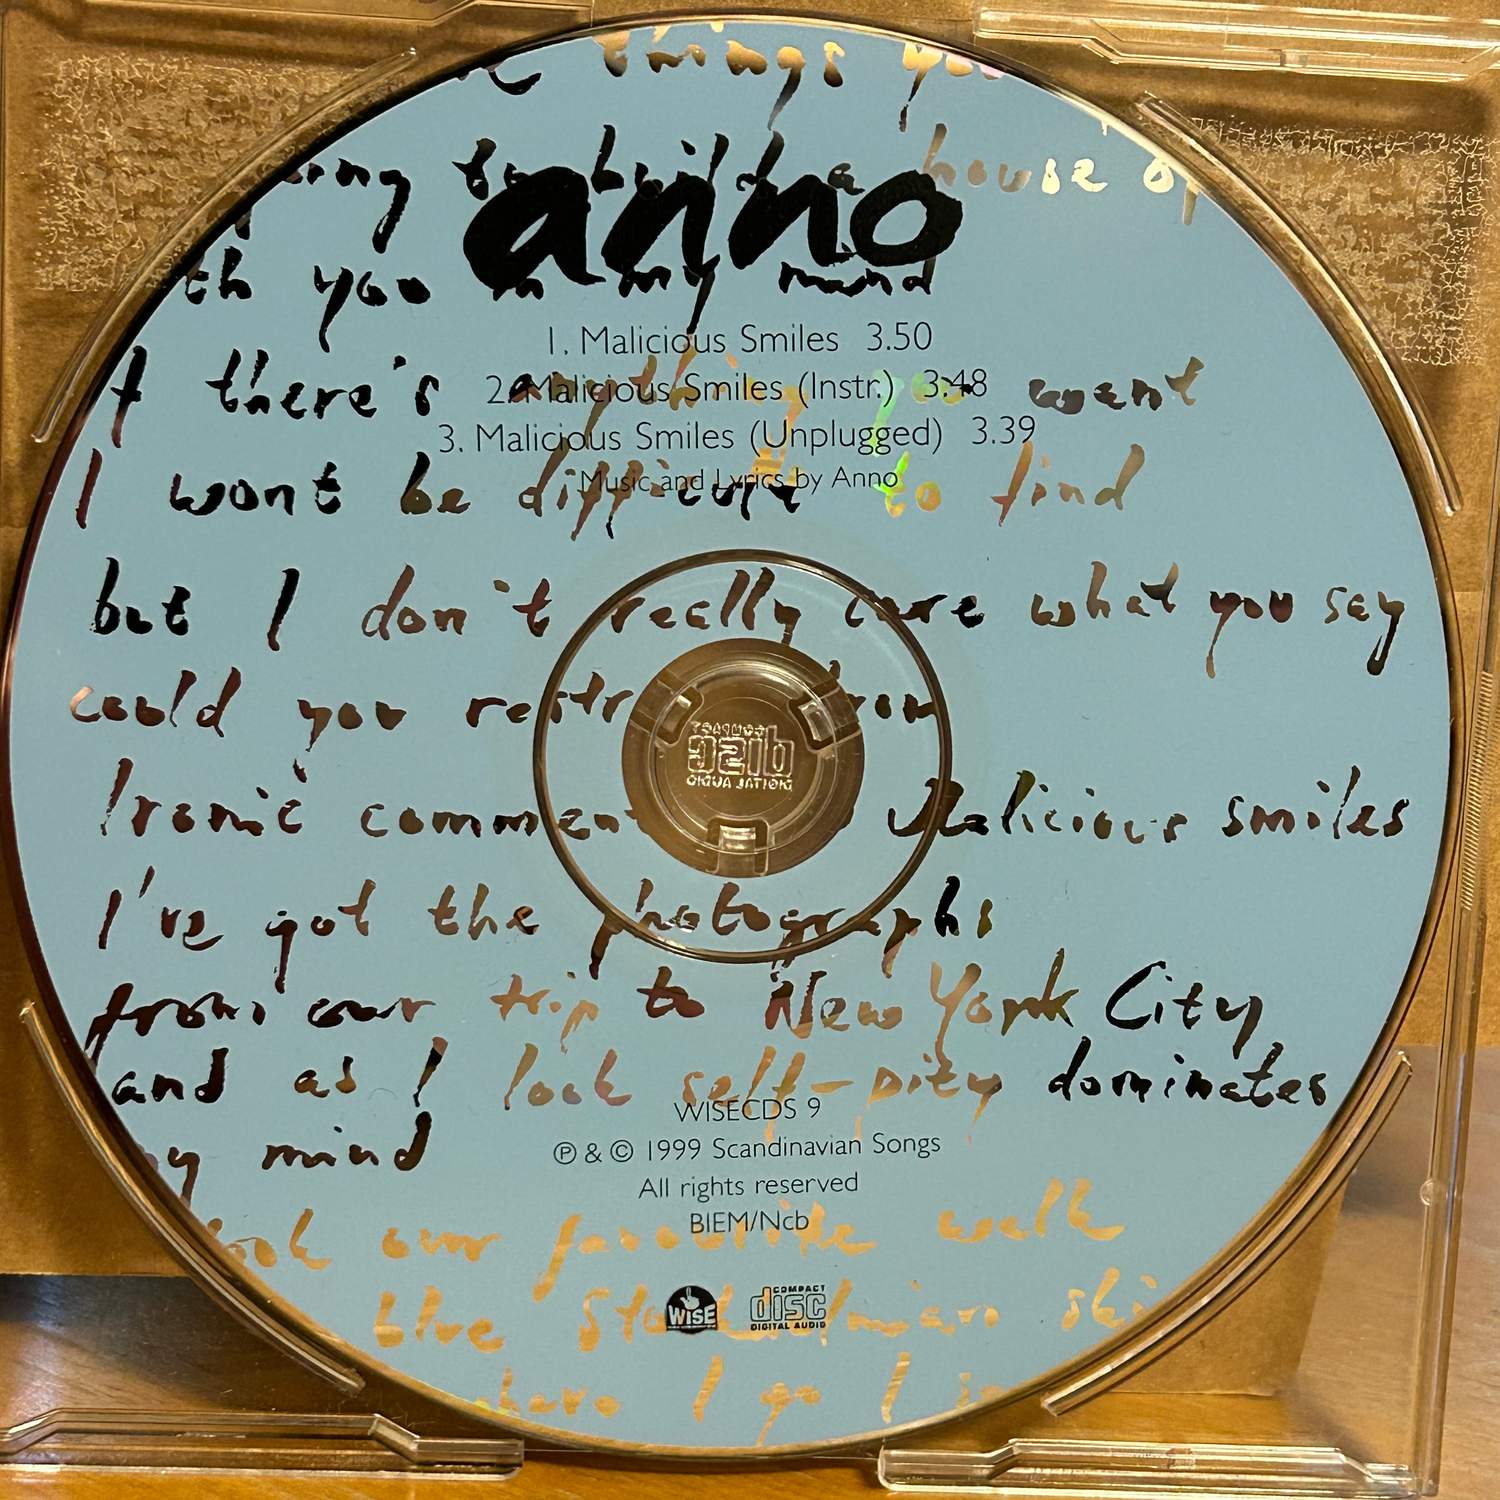 things
to build a house of
anno
you in my mind
1. Malicious Smiles 3.50
there's anything you want
2. Malicious Smiles (Instr.) 3:48
3. Malicious Smiles (Unplugged) 3.39
I wont be difficult to find
Music and Lyrics by Anno
but I don't really care what you say
could you from
COMPACT
disc
DIGITAL AUDIO
Ironic Malicious smiles
I've got the photographs
from our trip to New York City
and as I look self-pity dominates
WISECDS 9
my mind
℗ & © 1999 Scandinavian Songs
All rights reserved
BIEM/Ncb
our favourite walk
WISE
COMPACT
disc
DIGITAL AUDIO
blue
I go I